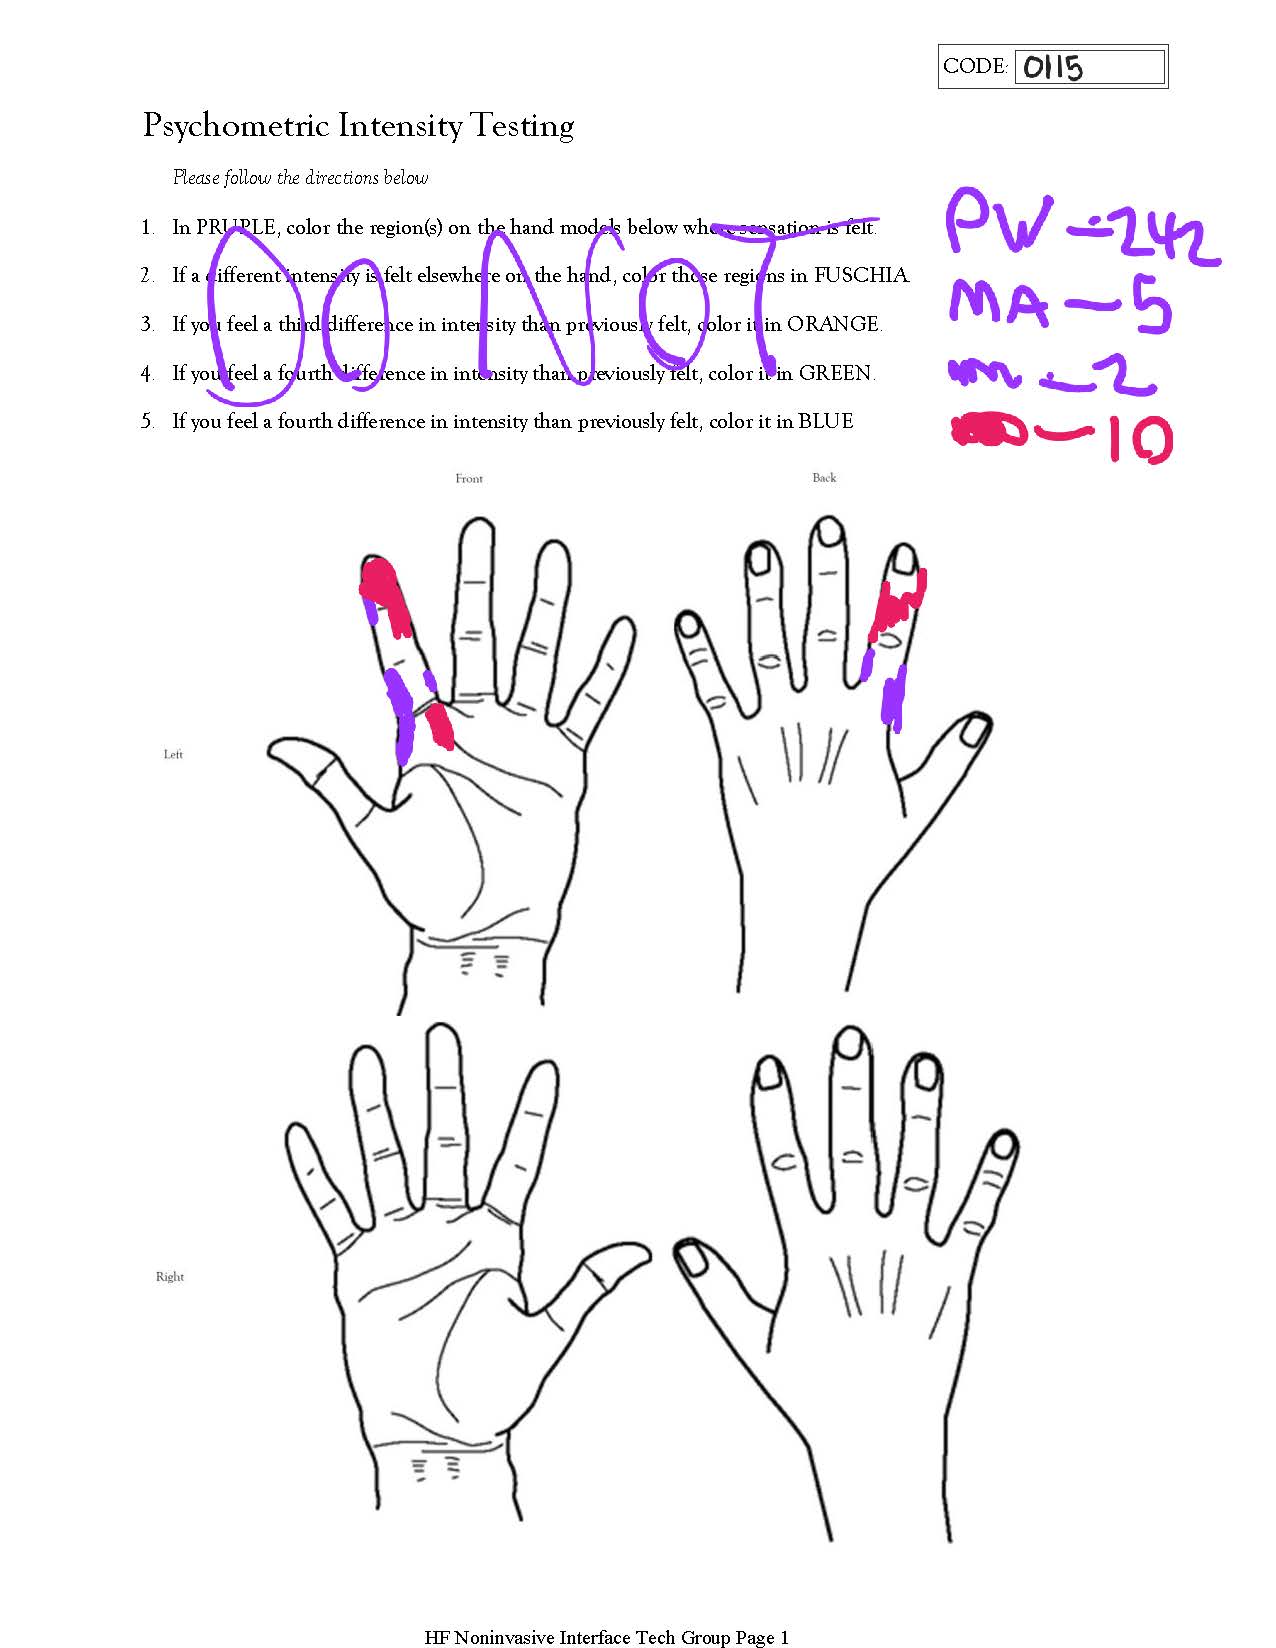 CODE: 0115
Psychometric Intensity Testing
Please follow the directions below
1. In PRUPLE, color the region(s) on the hand models below where sensation is felt.
2. If a different intensity is felt elsewhere on the hand, color those regions in FUSCHIA
3. If you feel a third difference in intensity than previously felt, color it in ORANGE.
4. If you feel a fourth difference in intensity than previously felt, color it in GREEN.
5. If you feel a fourth difference in intensity than previously felt, color it in BLUE
DO NOT
PW - 242
MA - 5
- 2
- 10
Front
Back
Left
Right
HF Noninvasive Interface Tech Group Page 1